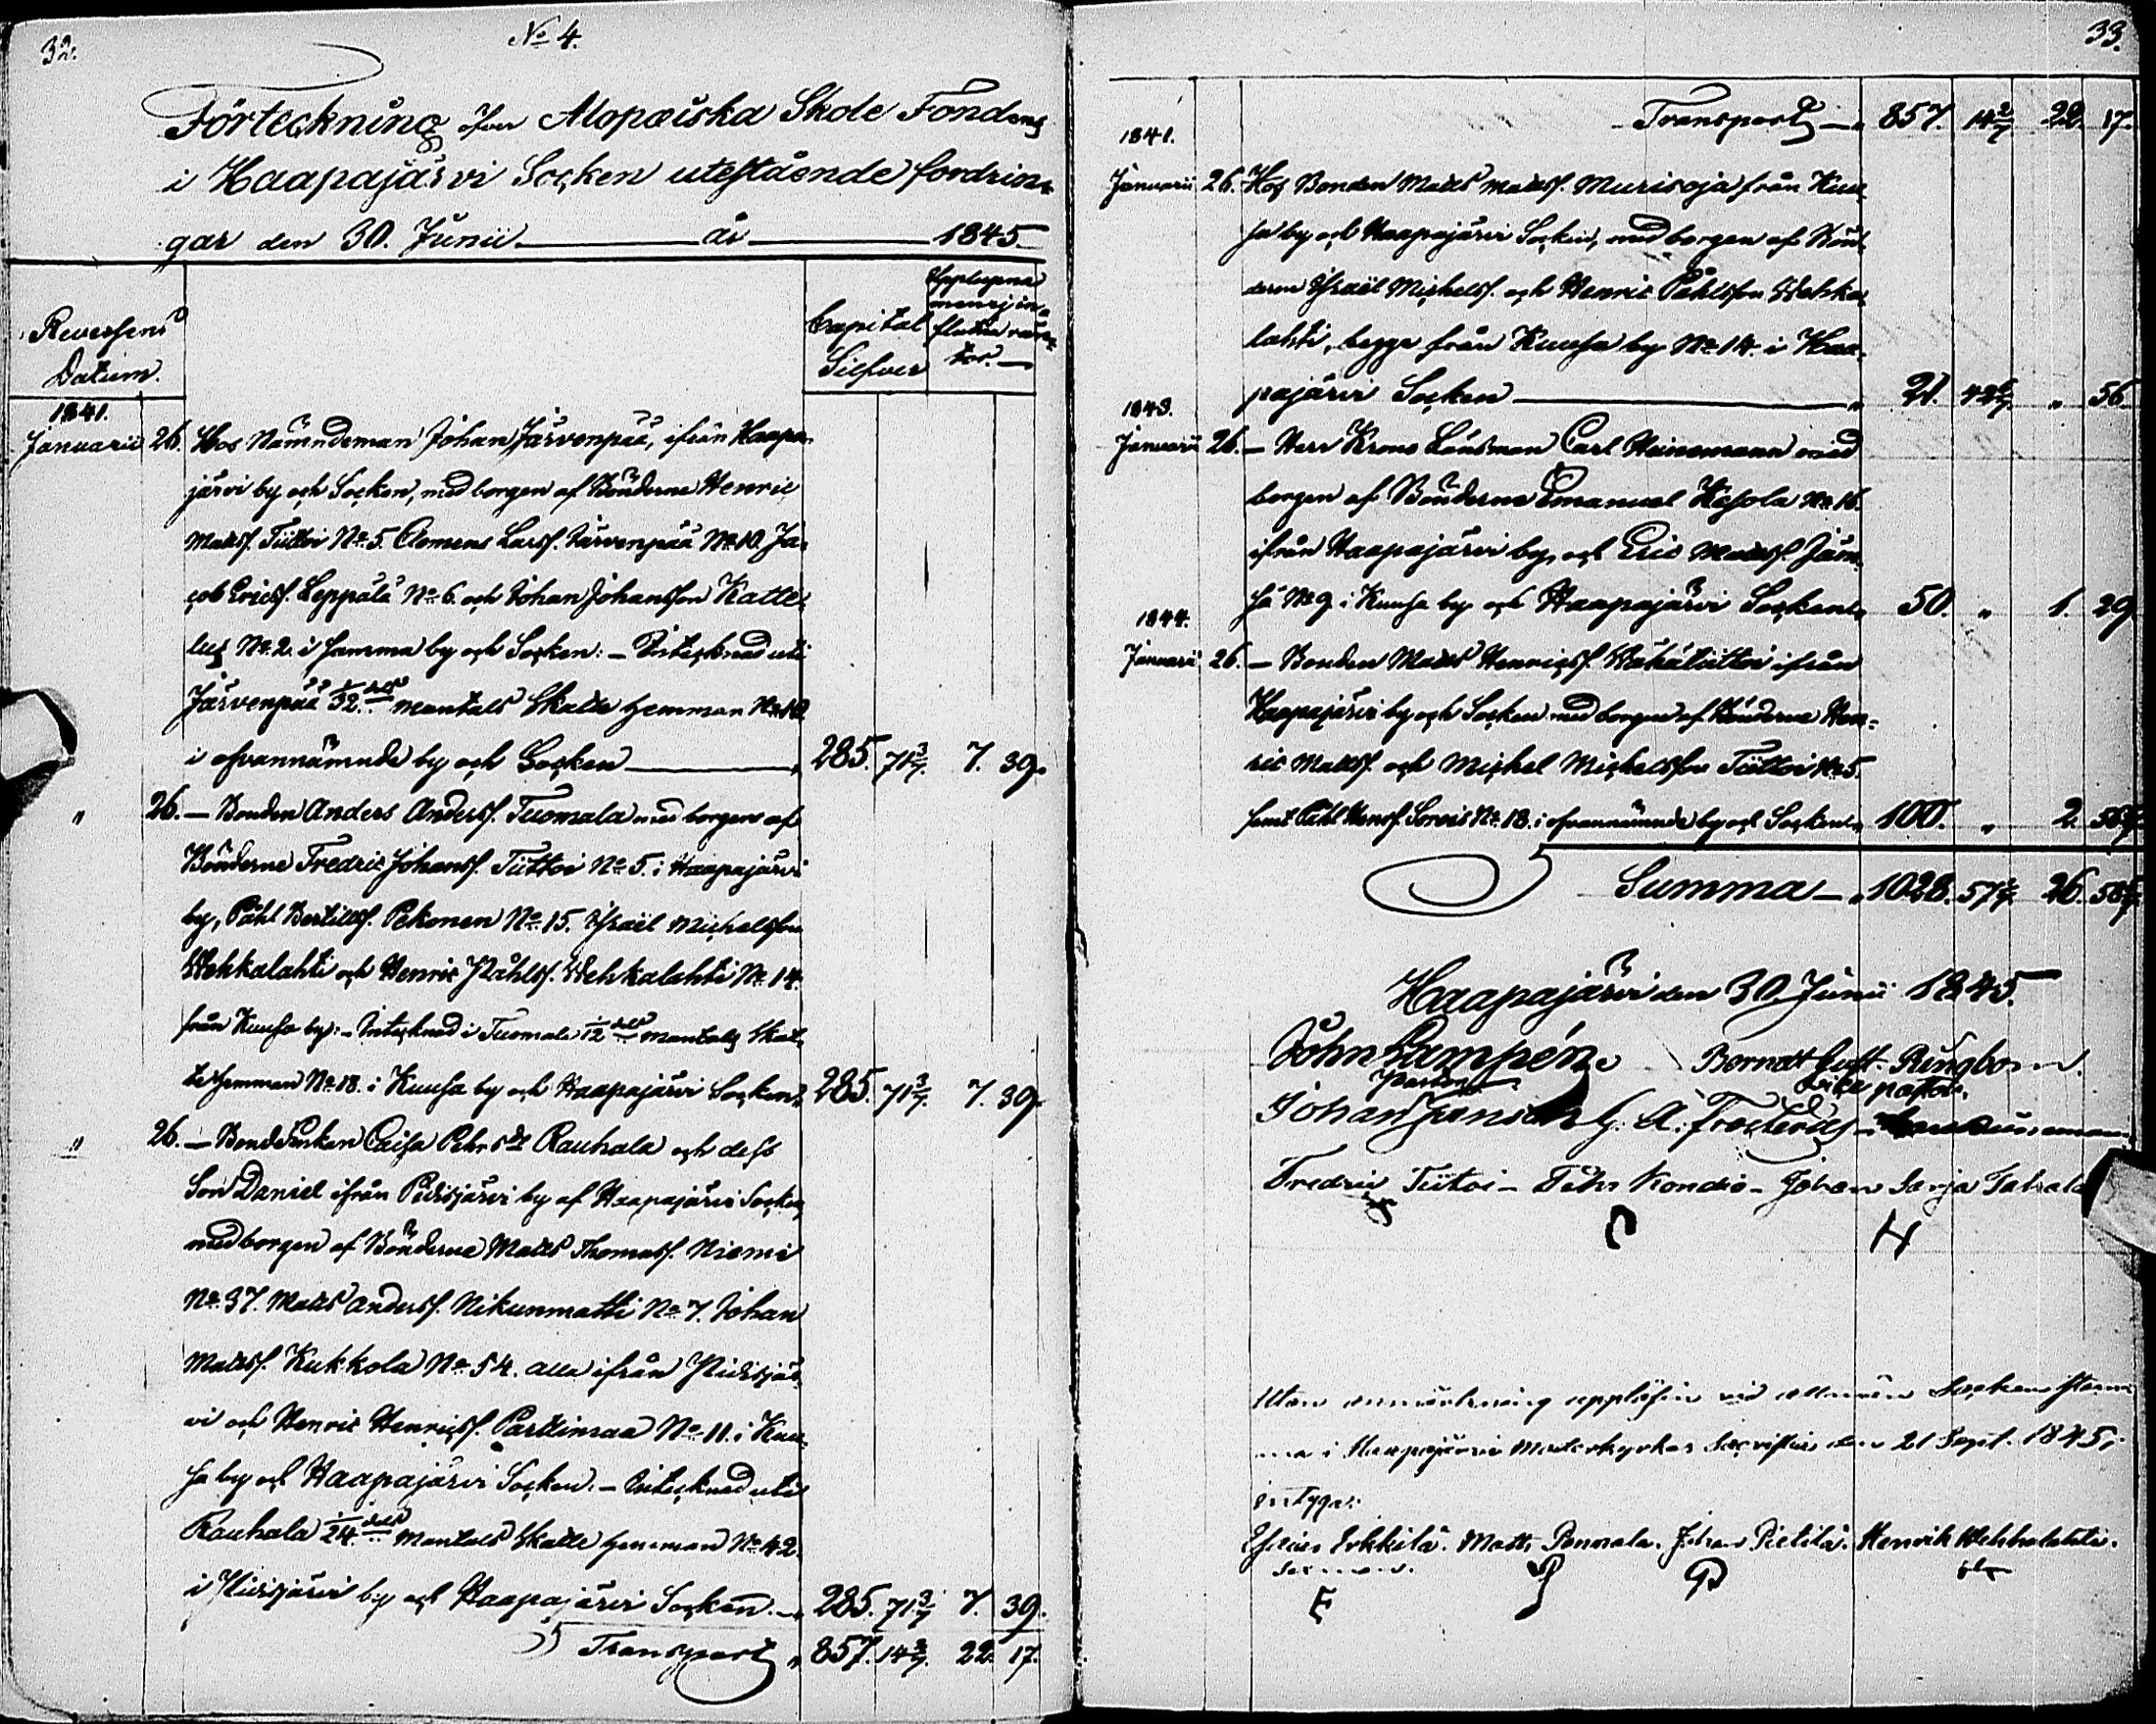 32.
No 4.
Förteckning öfver Alopæiska Skole Fondens
i Haapajärvi Socken utestående fordrin-
gar den 30. Junii år 1845
Reversens
Datum.
Capital
Silfver
Upplupne
men ej in-
flutne rän-
tor.
1841.
Januarii 26. Hos Nämndeman Johan Järvenpää, ifrån Haapa-
järvi by och Socken, med borgen af Bönderne Henric
Matsf. Tiitto No 5. Clemens Larsf. Järvenpää No 10. Ja-
cob Ericsf. Leppälä No 6. och Johan Johansson Katte-
lus No 2. i samma by och Socken: - Intecknad uti
Järvenpää 1/32 dels mantals Skatte hemman No 10
i ofvannämnde by och Socken 285. 71 3/7. 7. 39.
" 26. - Bonden Anders Andersf. Tuomala med borgen af
Bönderne Fredric Johansf. Tiittoi No 5. i Haapajärvi
by, Påhl Bertillsf. Pekonen No 15. Israël Michelsson
Wehkalahti och Henric Påhlsf. Wehkalahti No 14.
från Kuusa by: - Intecknad i Tuomala 1/12 dels mantals Skat-
te hemman No 18. i Kuusa by och Haapajärvi Socken 285. 71 3/7. 7. 39.
" 26. - Bondeenkan Caisa Pehrsdr Rauhala och dess
Son Daniel ifrån Pidisjärvi by af Haapajärvi Socken
med borgen af Bönderne Matts Thomasf. Niemi
No 37. Matts Andersf. Nikunmatti No 7. Johan
Mattsf. Kukkola No 54. alla ifrån Pidisjär-
vi och Henric Henricsf. Parkkimaa No 11. i Kuu-
sa by och Haapajärvi Socken. - Intecknad uti
Rauhala 1/24 dels Mantals Skatte hemman No 42.
i Pidisjärvi by och Haapajärvi Socken. 285. 71 3/7 7. 39.
Transport 857. 14 2/7. 22. 17.
33.
Transport 857. 14 2/7 22. 17.
1841.
Januarii 26. Hos Bonden Matts Mattsf. Murisoja från Kuu-
sa by och Haapajärvi Socken, med borgen af Bön-
derne Israël Michelsf. och Henric Påhlsson Wehka-
lahti, begge från Kuusa by No 14. i Haa-
pajärvi Socken 21. 42 6/7. " 56.
1843.
Januarii 26. - Herr Krono Länsman Carl Heinemann med
borgen af Bönderne Emanuel Kesola No 16.
ifrån Haapajärvi by, och Eric Mattsf. Jäm-
sä No 9. i Kuusa by och Haapajärvi Socken 50. " 1. 29
1844.
Januarii 26. - Bonden Matts Henricsf. Wähätiittoi ifrån
Haapajärvi by och Socken med borgen af Bönderne Hen-
ric Mattsf. och Michel Michelsson Tiittoi No 5.
samt Påhl Hensf. Sorvis No 18. i ofvannämnde by och Socken 100. " 2.
Summa 1028. 57 1/7. 26.
Haapajärvi den 30. Junii 1845.
John Lampén Berndt Gust. Ringbom.
Pastor Vice pastor.
Johan Jansson G. A. Frosterus
Fredric Tiitoi - Pehr Kondio - Johan Sarja Tahala
H
Utan anmärkning uppläsen vid allmän Sockenstem-
ma i Haapajärvi Moderkyrkas Sacristia den 21 Sept. 1845;
intyga:
Erkkilä. Matts Ronnala. Johan Pietilä. Henrik Wehkalahti.
E